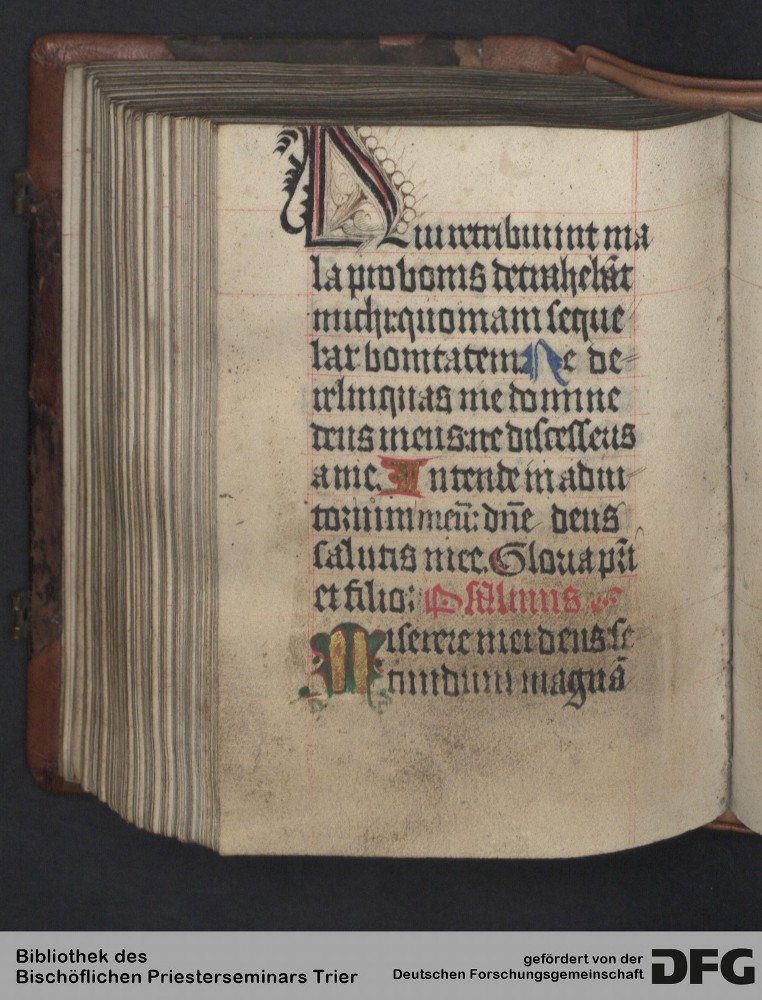 Qui retribuunt ma
la pro bonis detrahebāt
michi: quoniam seque
bar bonitatem. Ne de-
relinquas me domine
deus meus: ne discesseris
a me. Intende in adiu-
torium meū: dn̄e deus
salutis mee. Gloria pr̄i
et filio: Psalmus
Miserere mei deus se
cundum magnā
Bibliothek des
Bischöflichen Priesterseminars Trier
gefördert von der
Deutschen Forschungsgemeinschaft
DFG